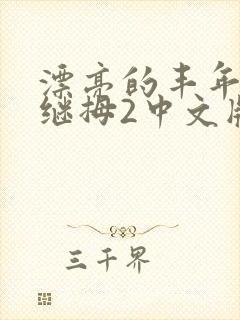 漂亮的丰年
继拇2中文版
三千界